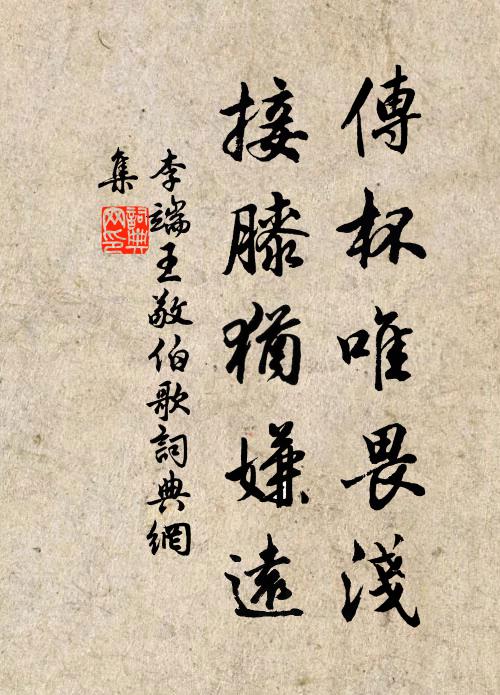 傳杯唯畏淺
接膝猶嫌遠
李端王敬伯歌詞典網
集
詞典網印